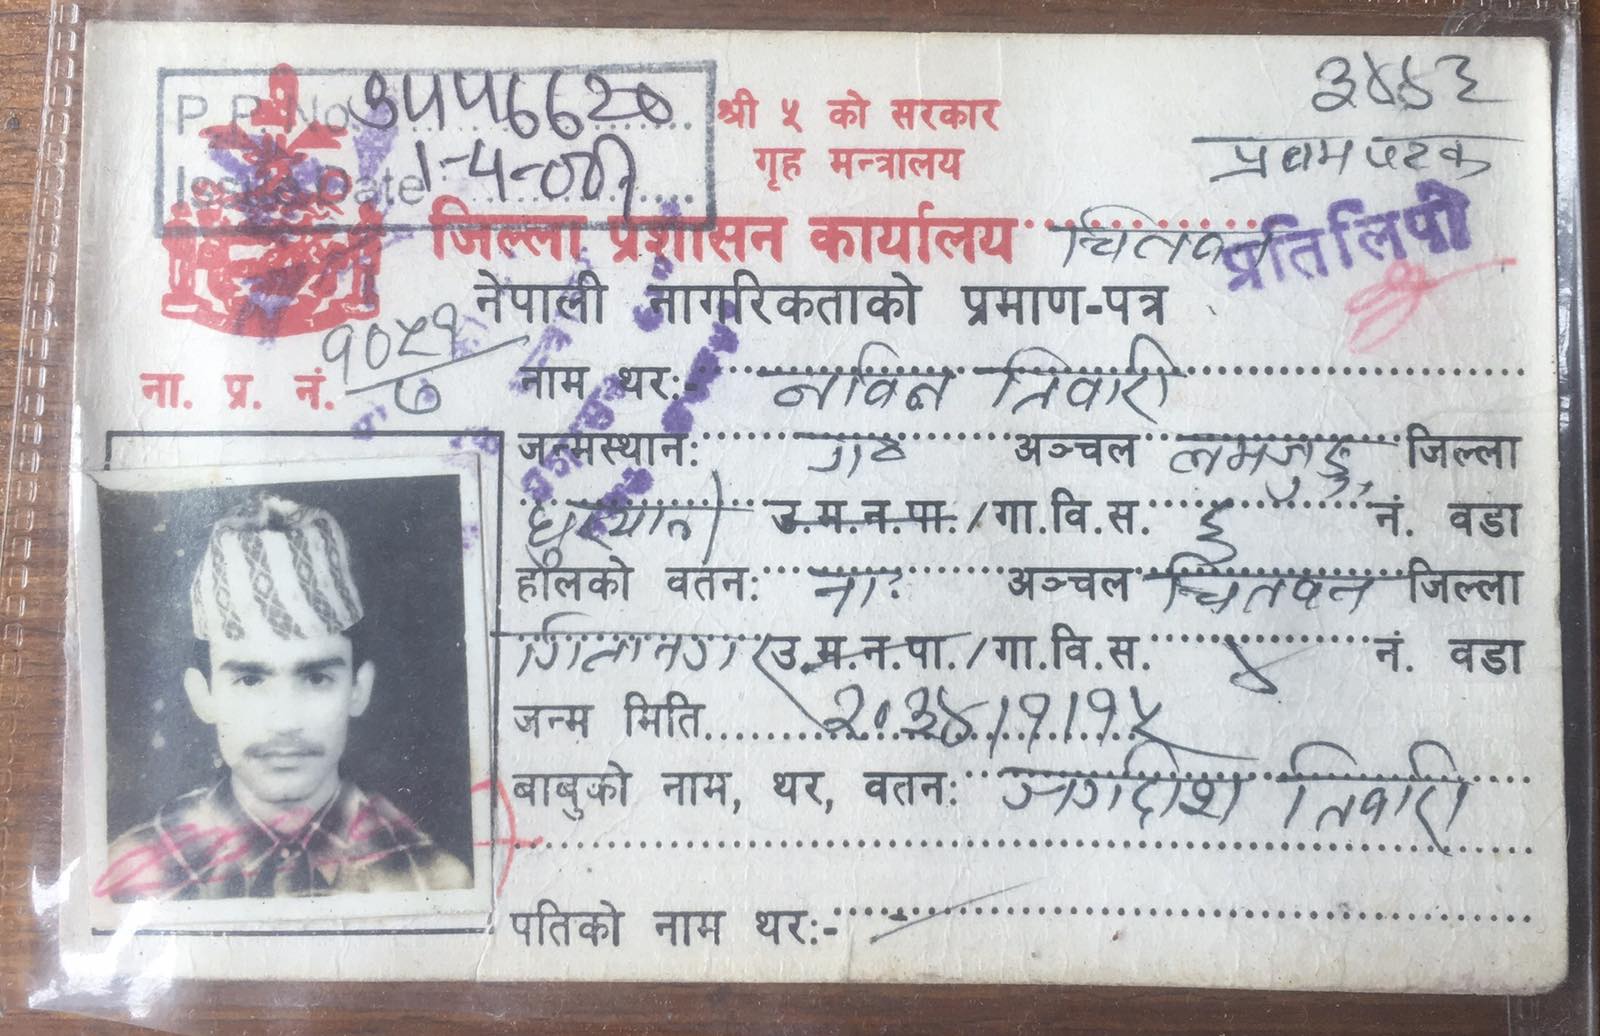 P. P. No. 3556620
Issue Date 1-4-001
३४४३
प्रथम पटक
श्री ५ को सरकार
गृह मन्त्रालय
जिल्ला प्रशासन कार्यालय चितवन
प्रतिलिपी
नेपाली नागरिकताको प्रमाण-पत्र
ना. प्र. नं.
नाम थर:- नविन तिवारी
जन्मस्थान: अञ्चल लमजुङ जिल्ला
उ.म.न.पा./गा.वि.स. नं. वडा
हालको वतन: ना. अञ्चल चितवन जिल्ला
गितानगर उ.म.न.पा./गा.वि.स. ४ नं. वडा
जन्म मिति २०३४।१।१५
बाबुको नाम, थर, वतन: जगदीश तिवारी
पतिको नाम थर:-